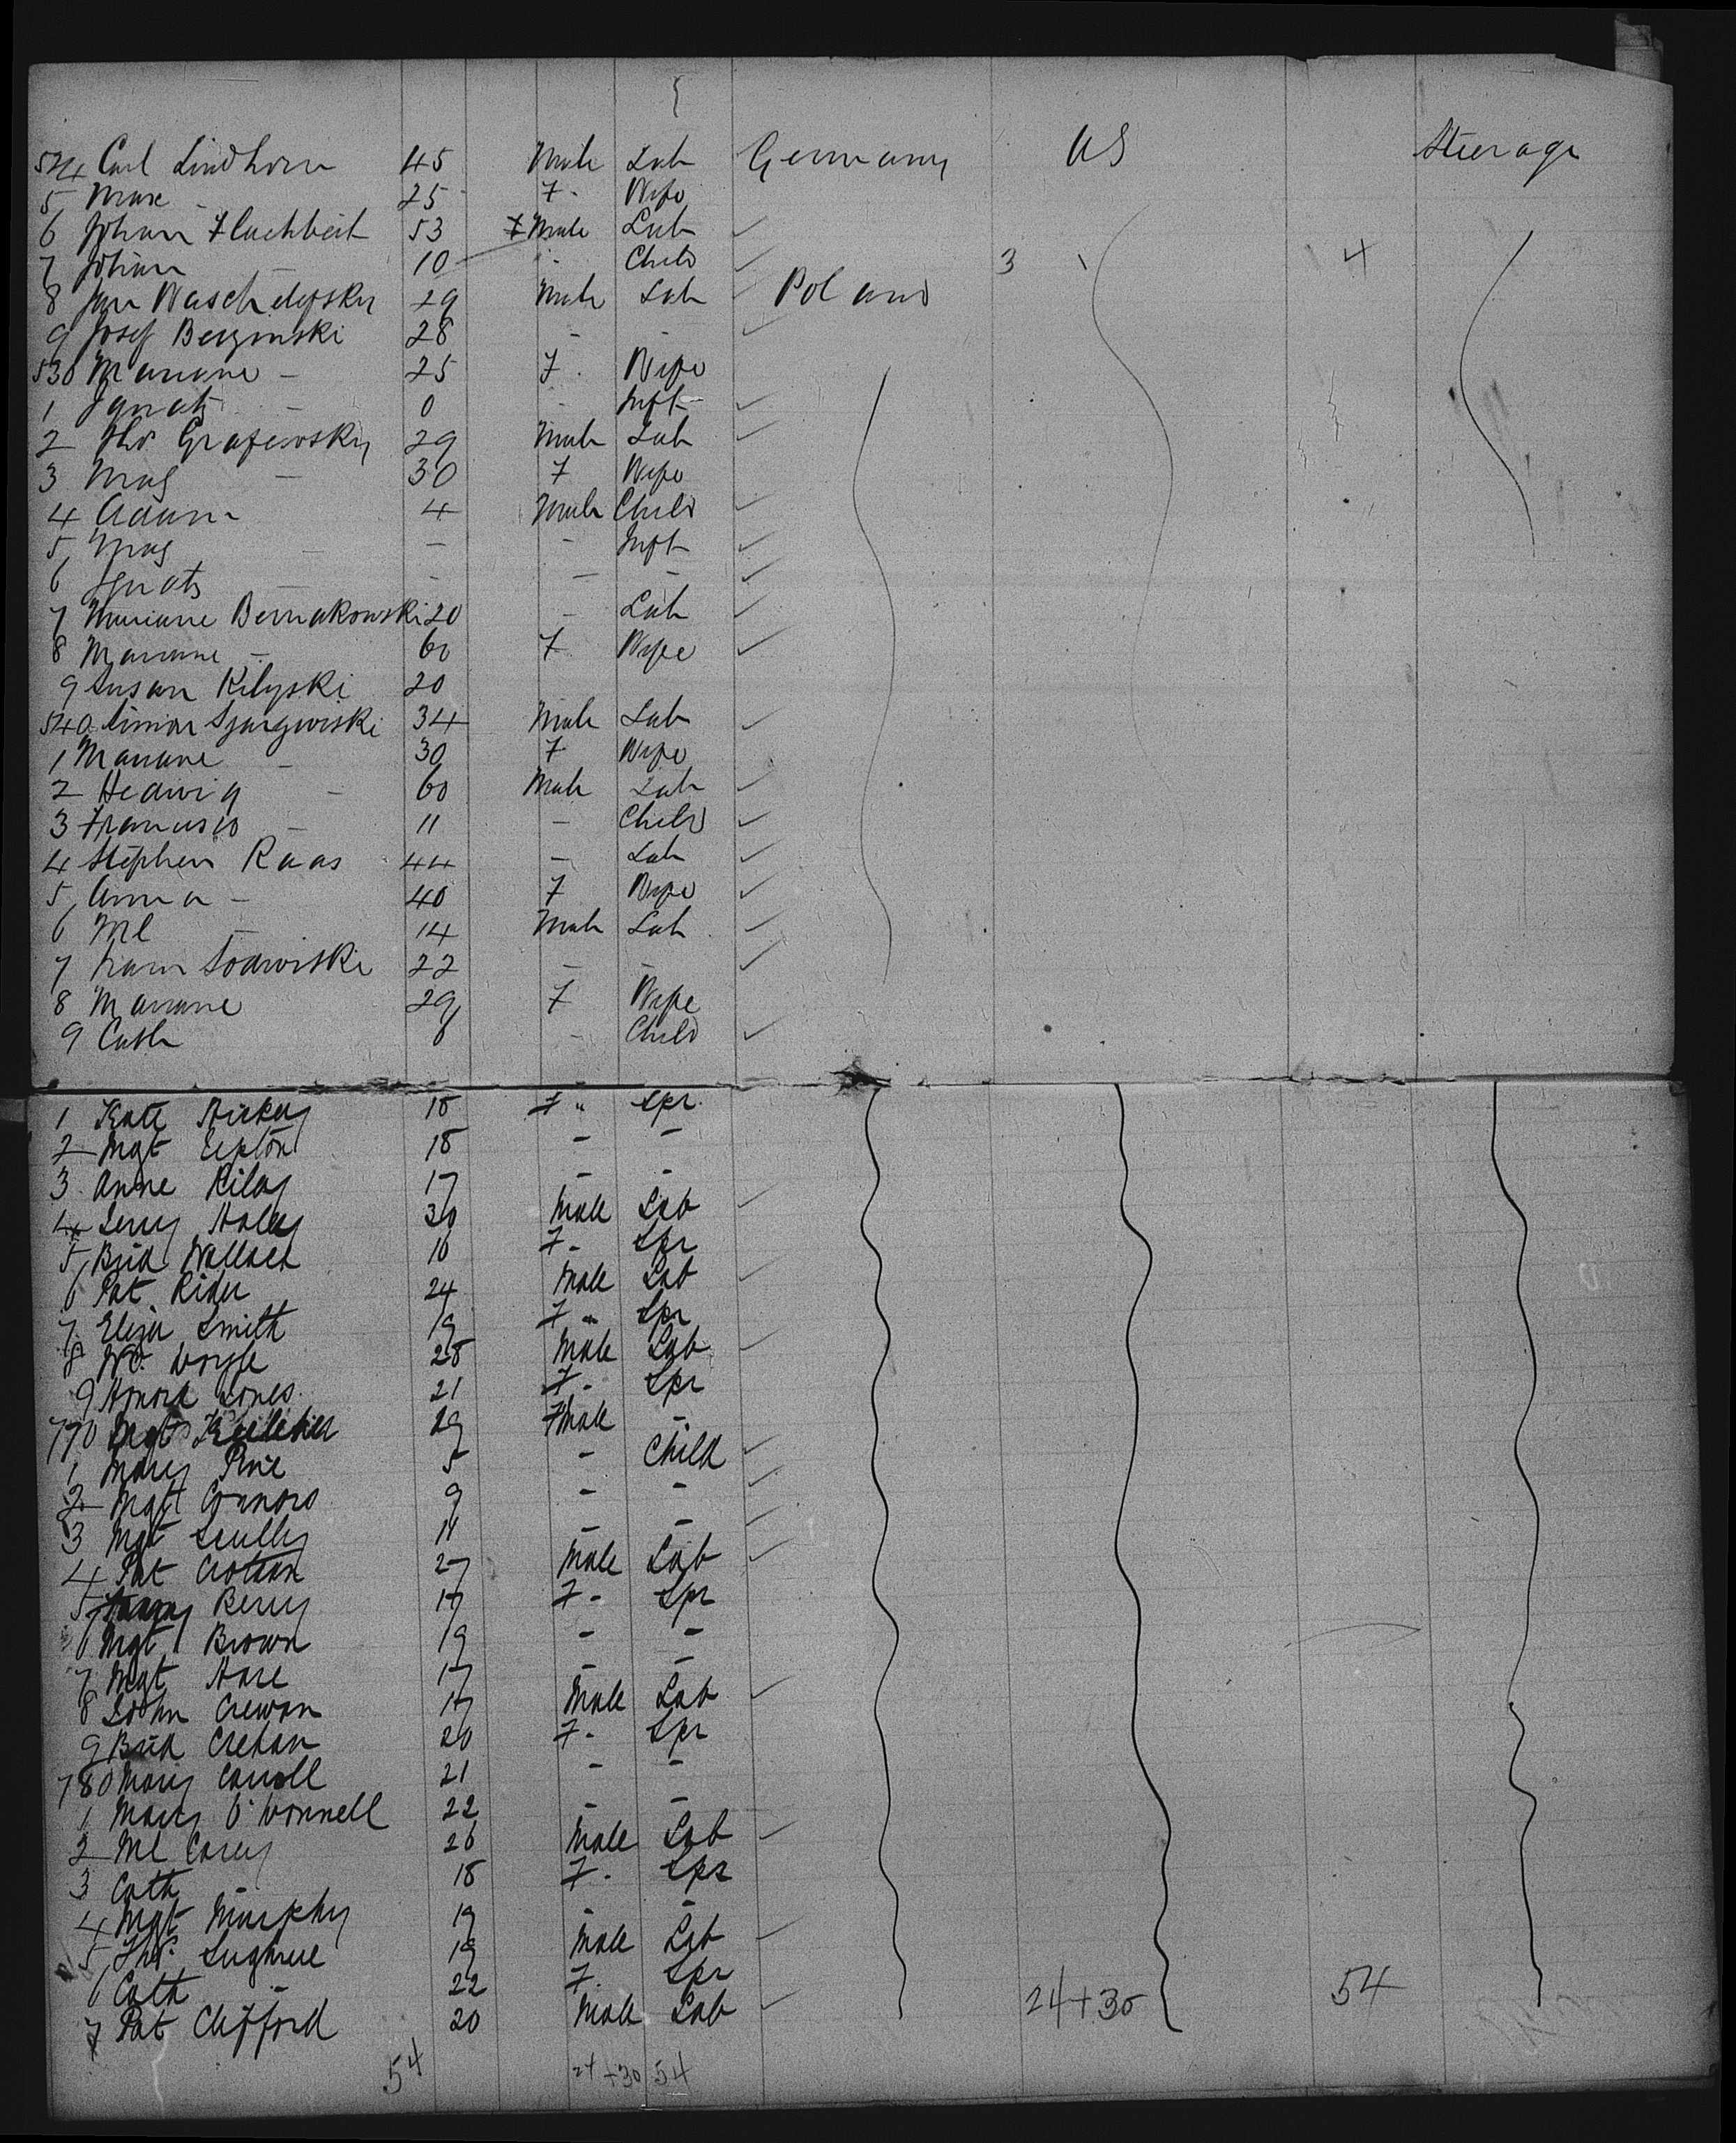 524 Carl Lindhorn 45 Male Lab Germany US Steerage
5 Marie - 25 F - Wife
6 Johan Flachbeit 53 Male Lab
7 Johan - 10 - Child 3 4
8 Jan 29 Male Lab Poland
9 Josef Berzinski 28 - -
530 Mariane - 25 F. Wife
1 Ignatz - 0 - Inft
2 Ths Grafewsky 29 Male Lab
3 Mag - 30 F Wife
4 Adam 4 Male Child
5 Mag - - - Inft
6 Ignatz - - - -
7 Mariane Bernakowski 20 - Lab
8 Mariane - 60 F Wife
9 Susan Kilyski 20
540 Simon 34 Male Lab
1 Mariane - 30 F Wife
2 Hedwig - 60 Male Lab
3 Francisco - 11 - Child
4 Stephen Raas 44 - Lab
5 Anna - 40 F Wife
6 Ml - 14 Male Lab
7 22 - -
8 Mariane 29 F Wife
9 Cath 8 - Child
1 Kate Hickey 18 F " Spr
2 Mgt 18 - -
3 Anne Riley 17 - -
4 Jerry Haley 30 Male Lab
5 Brid Wallace 16 F - Spr
6 Pat Rider 24 Male Lab
7 Eliza Smith 19 F " Spr
8 Wm Doyle 28 Male Lab
9 Honora Jones 21 F - Spr
770 Mgt 29 Fmale -
1 Mary Rue 5 - Child
2 Mgt Connors 9 - -
3 Mgt Scully 11 - -
4 Pat Crotean 27 Male Lab
5 Berry 17 F - Spr
6 Mgt Brown 19 - -
7 Mgt Hare 17 - -
8 John Crewan 17 Male Lab
9 Brid Crehan 20 F - Spr
780 Mary Carroll 21 - -
1 Mary O'Donnell 22 - -
2 Ml Carey 26 Male Lab
3 Cath - 18 F. Spr
4 Mgt Murphy 19 - -
5 Ths. Sughrue 19 Male Lab
6 Cath - 22 F. Spr
7 Pat Clifford 20 Male Lab 24+30 54
54 24+30 54